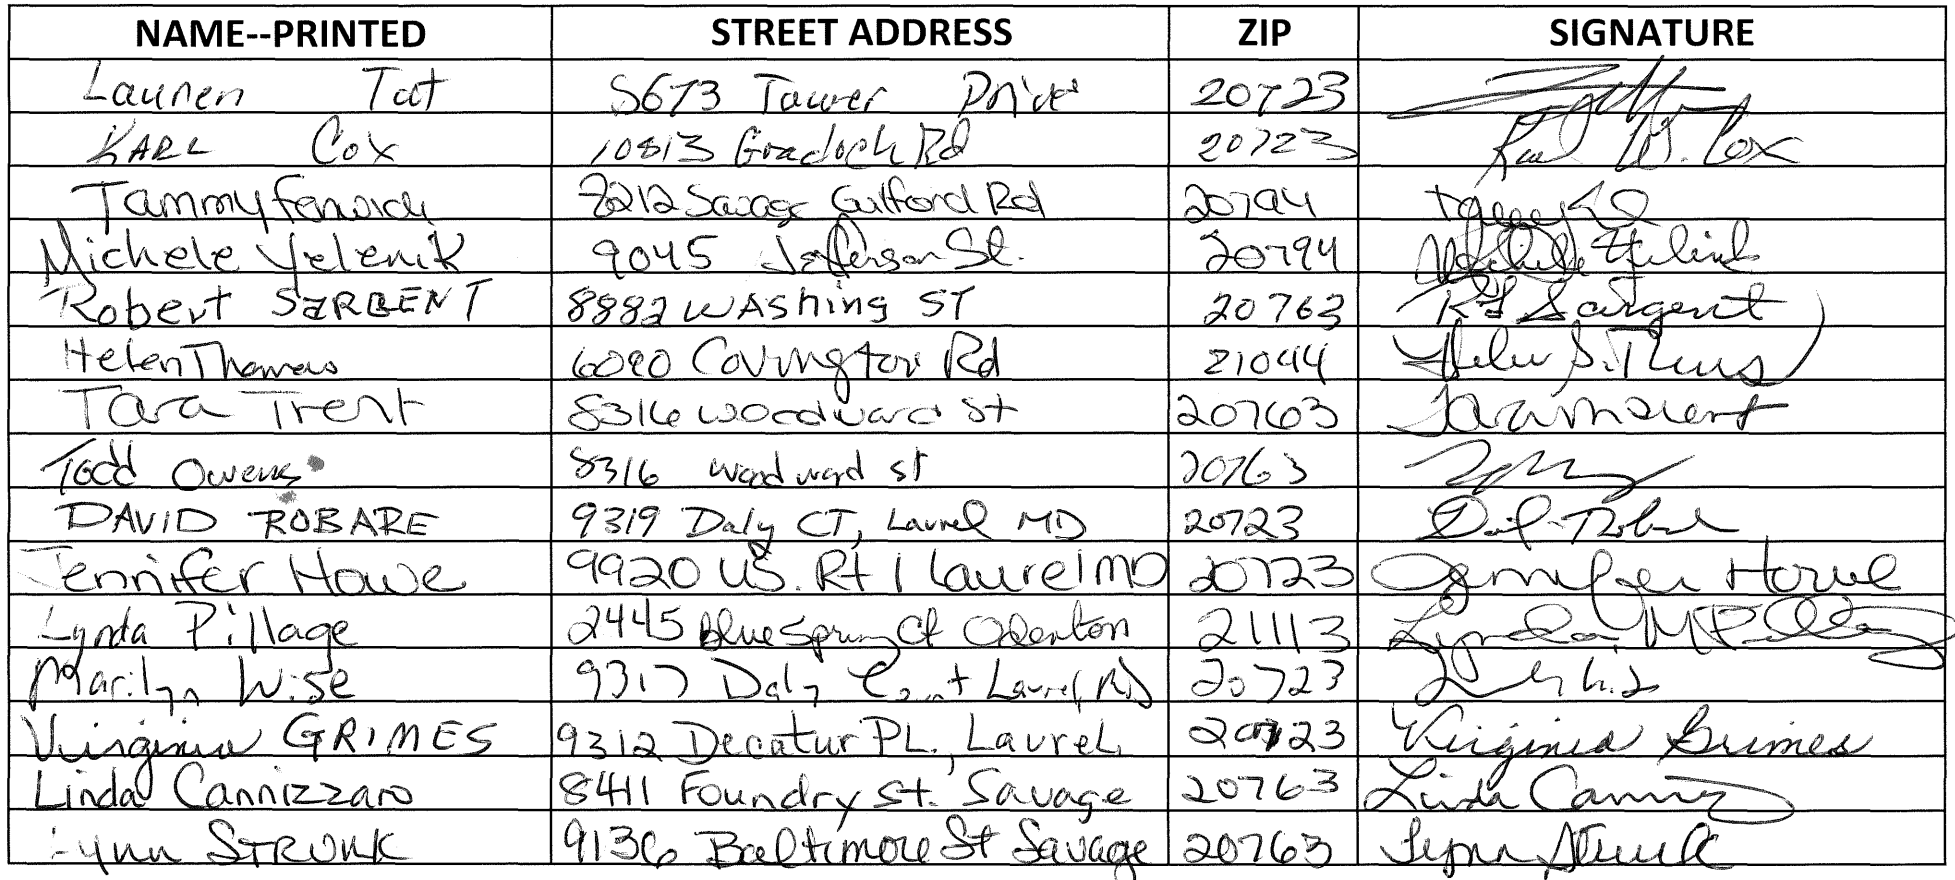 NAME--PRINTED STREET ADDRESS ZIP SIGNATURE
Lauren Tat 5673 Tower Drive 20723
KARL Cox 10813 Rd 20723 Karl W. Cox
Tammy Fenwick 8212 Savage Guilford Rd 20794
Michele Yelenik 9045 Jefferson St. 20794 Michele Yelenik
Robert SARGENT 8882 WAShing ST 20763 Sargent
Helen Thomas 6090 Covington Rd 21044 Helen S. Thomas
Tara Trent 8316 Woodward St 20763 Tara Trent
Todd Owens 8316 Woodward st 20763
DAVID ROBARE 9319 Daly CT, Laurel MD 20723
Jennifer Howe 9920 US. Rt 1 Laurel MD 20723 Jennifer Howe
Lynda Pillage 2445 Blue Spring Ct Odenton 21113 Lynda M Pillage
Marilyn Wise 9317 Daly Court Laurel MD 20723
Virginia GRIMES 9312 Decatur PL., Laurel 20723 Virginia Grimes
Linda Cannizzaro 8411 Foundry St. Savage 20763 Linda
Lynn STRONK 9136 Baltimore St Savage 20763 Lynn